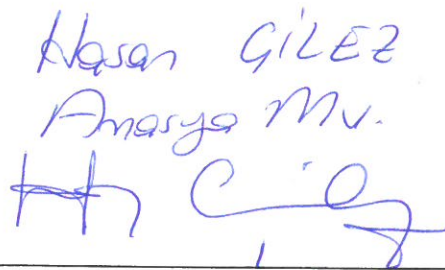 Hasan GİLEZ
Amasya Mv.